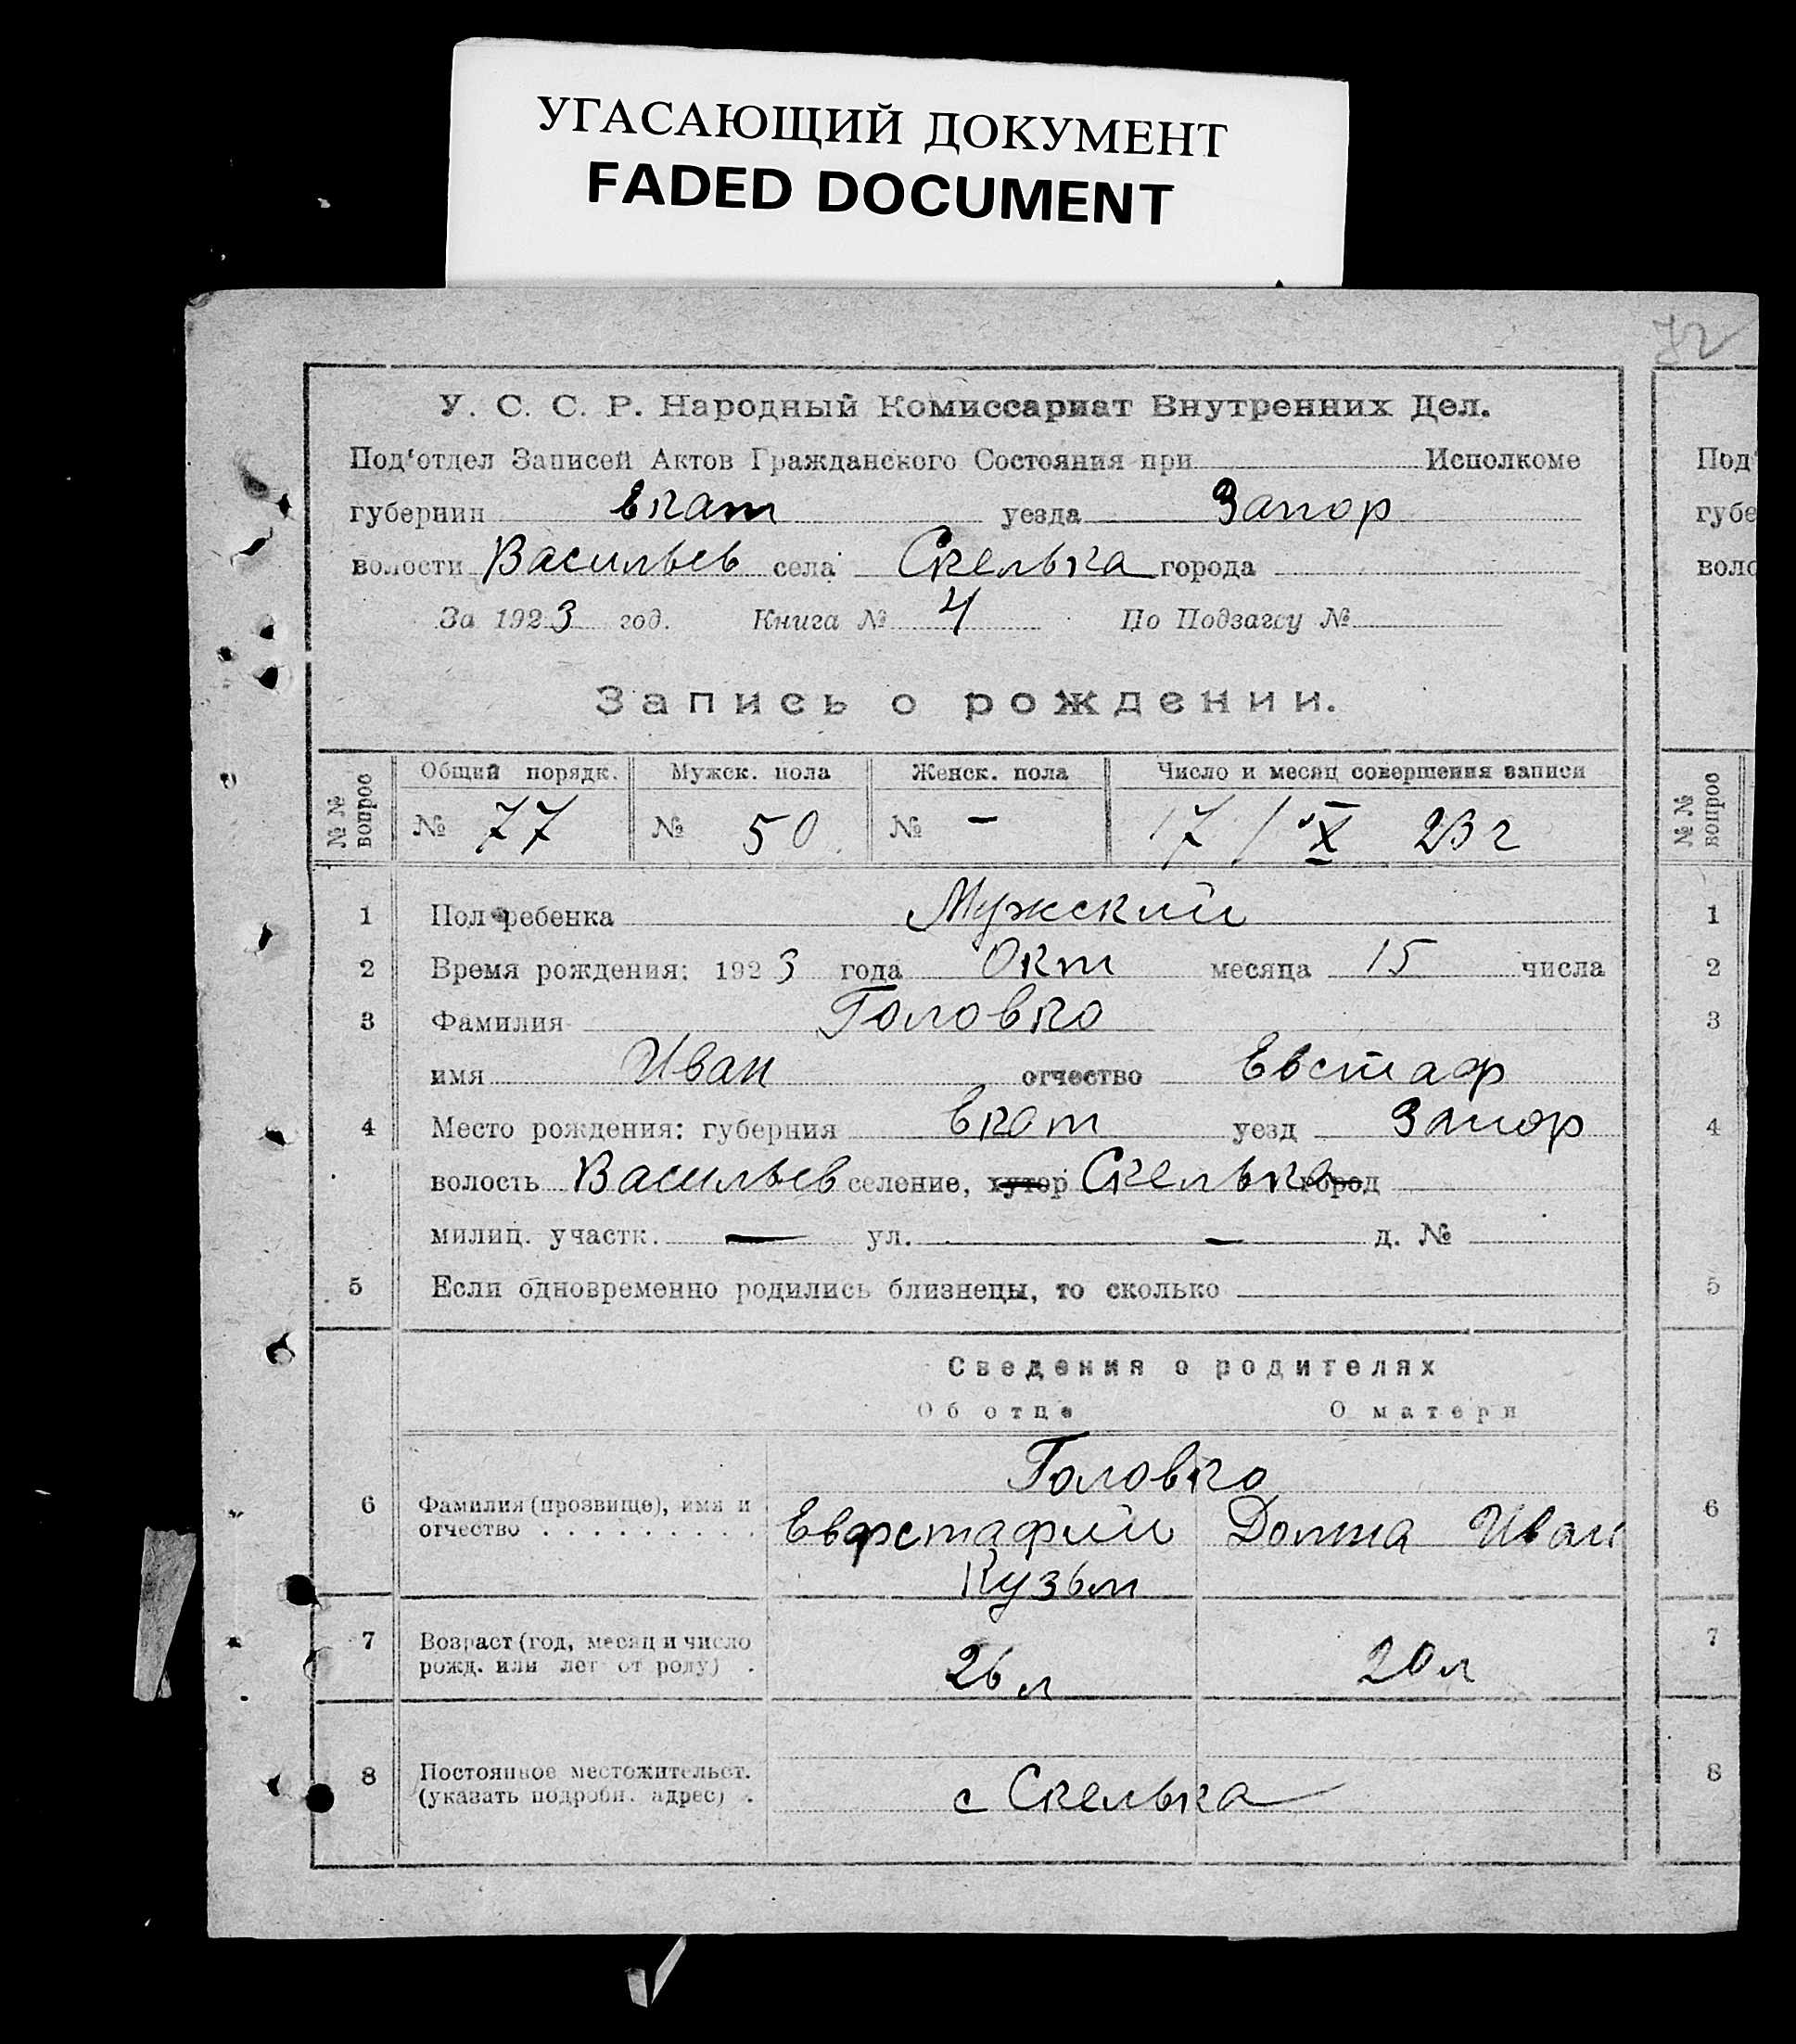 УГАСАЮЩИЙ ДОКУМЕНТ
FADED DOCUMENT
72
У. С. С. Р. Народный Комиссариат Внутренних Дел.
Под'отдел Записей Актов Гражданского Состояния при Исполкоме
губернии Екат уезда Запор
волости Васильев села Скелька города
За 1923 год. Книга № 4 По Подзагсу №
Запись о рождении.
№№ вопрос Общий порядк. Мужск. пола Женск. пола Число и месяц совершения записи
№ 77 № 50 № - 17 / X 23 г
1 Пол ребенка Мужский
2 Время рождения: 1923 года Окт месяца 15 числа
3 Фамилия Головко
имя Иван отчество Евстаф
4 Место рождения: губерния Екат уезд Запор
волость Васильев селение, хутор Скелька город
милиц. участк. — ул. — д. №
5 Если одновременно родились близнецы, то сколько
Сведения о родителях
Об отце О матери
Головко
6 Фамилия (прозвище), имя и
отчество . . . . . . . . . Евфстафий Домна Иван
Кузьм
7 Возраст (год, месяц и число
рожд. или лет от роду) . 26 л 20 л
8 Постоянное местожительст.
(указать подробн. адрес) . с Скелька
Под'
губе
воло
№№ вопрос
1
2
3
4
5
6
7
8